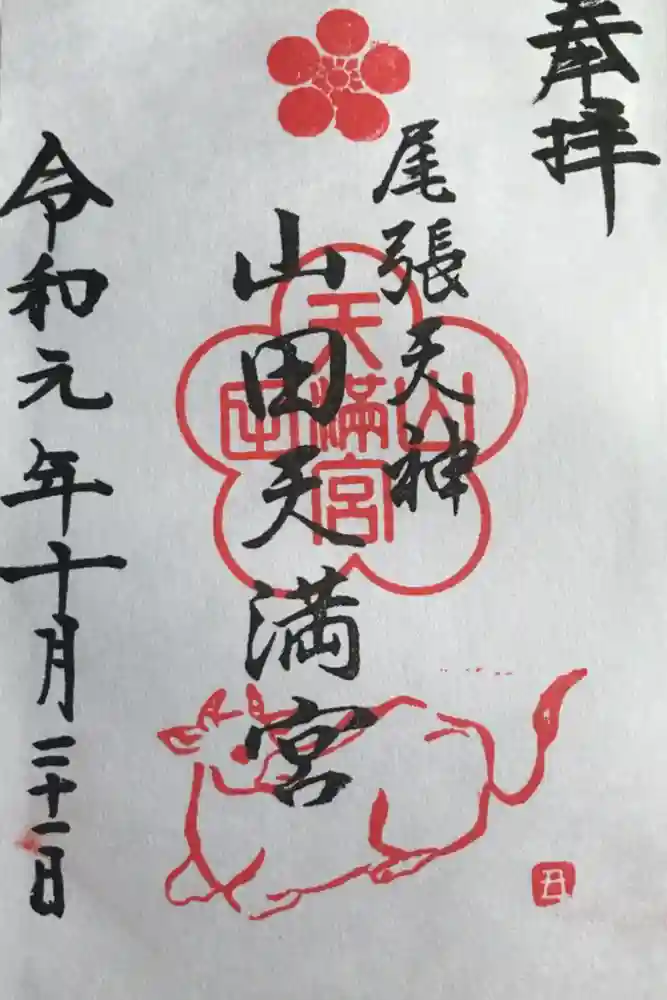 奉拝
尾張天神
山田天満宮
令和元年十月二十一日
天満宮
山田
丑